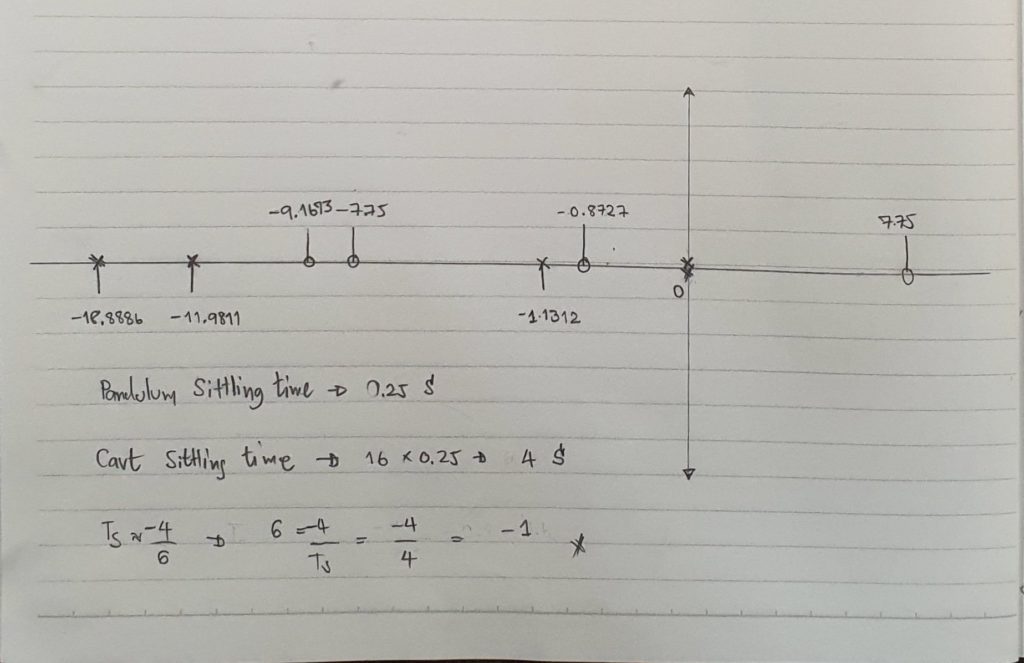 -9.1693 -7.75 -0.8727 7.75
-18.8886 -11.9811 -1.1312 0
Pandulum Sittling time → 0.25 S
Cart Sittling time → 16 × 0.25 → 4 S
Ts ≈ -4/6 → 6 = -4/Ts = -4/4 = -1